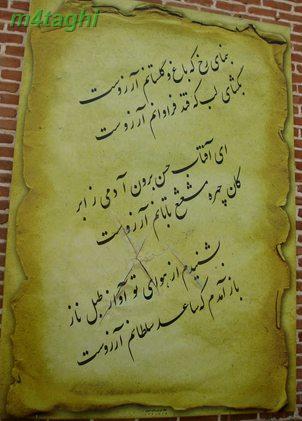 m4taghi
بنمای رخ که باغ و گلستانم آرزوست
بگشای لب که قند فراوانم آرزوست
ای آفتاب حسن برون آ دمی ز ابر
کان چهره مشعشع تابانم آرزوست
بشنیدم از هوای تو آواز طبل باز
باز آمدم که ساعد سلطانم آرزوست